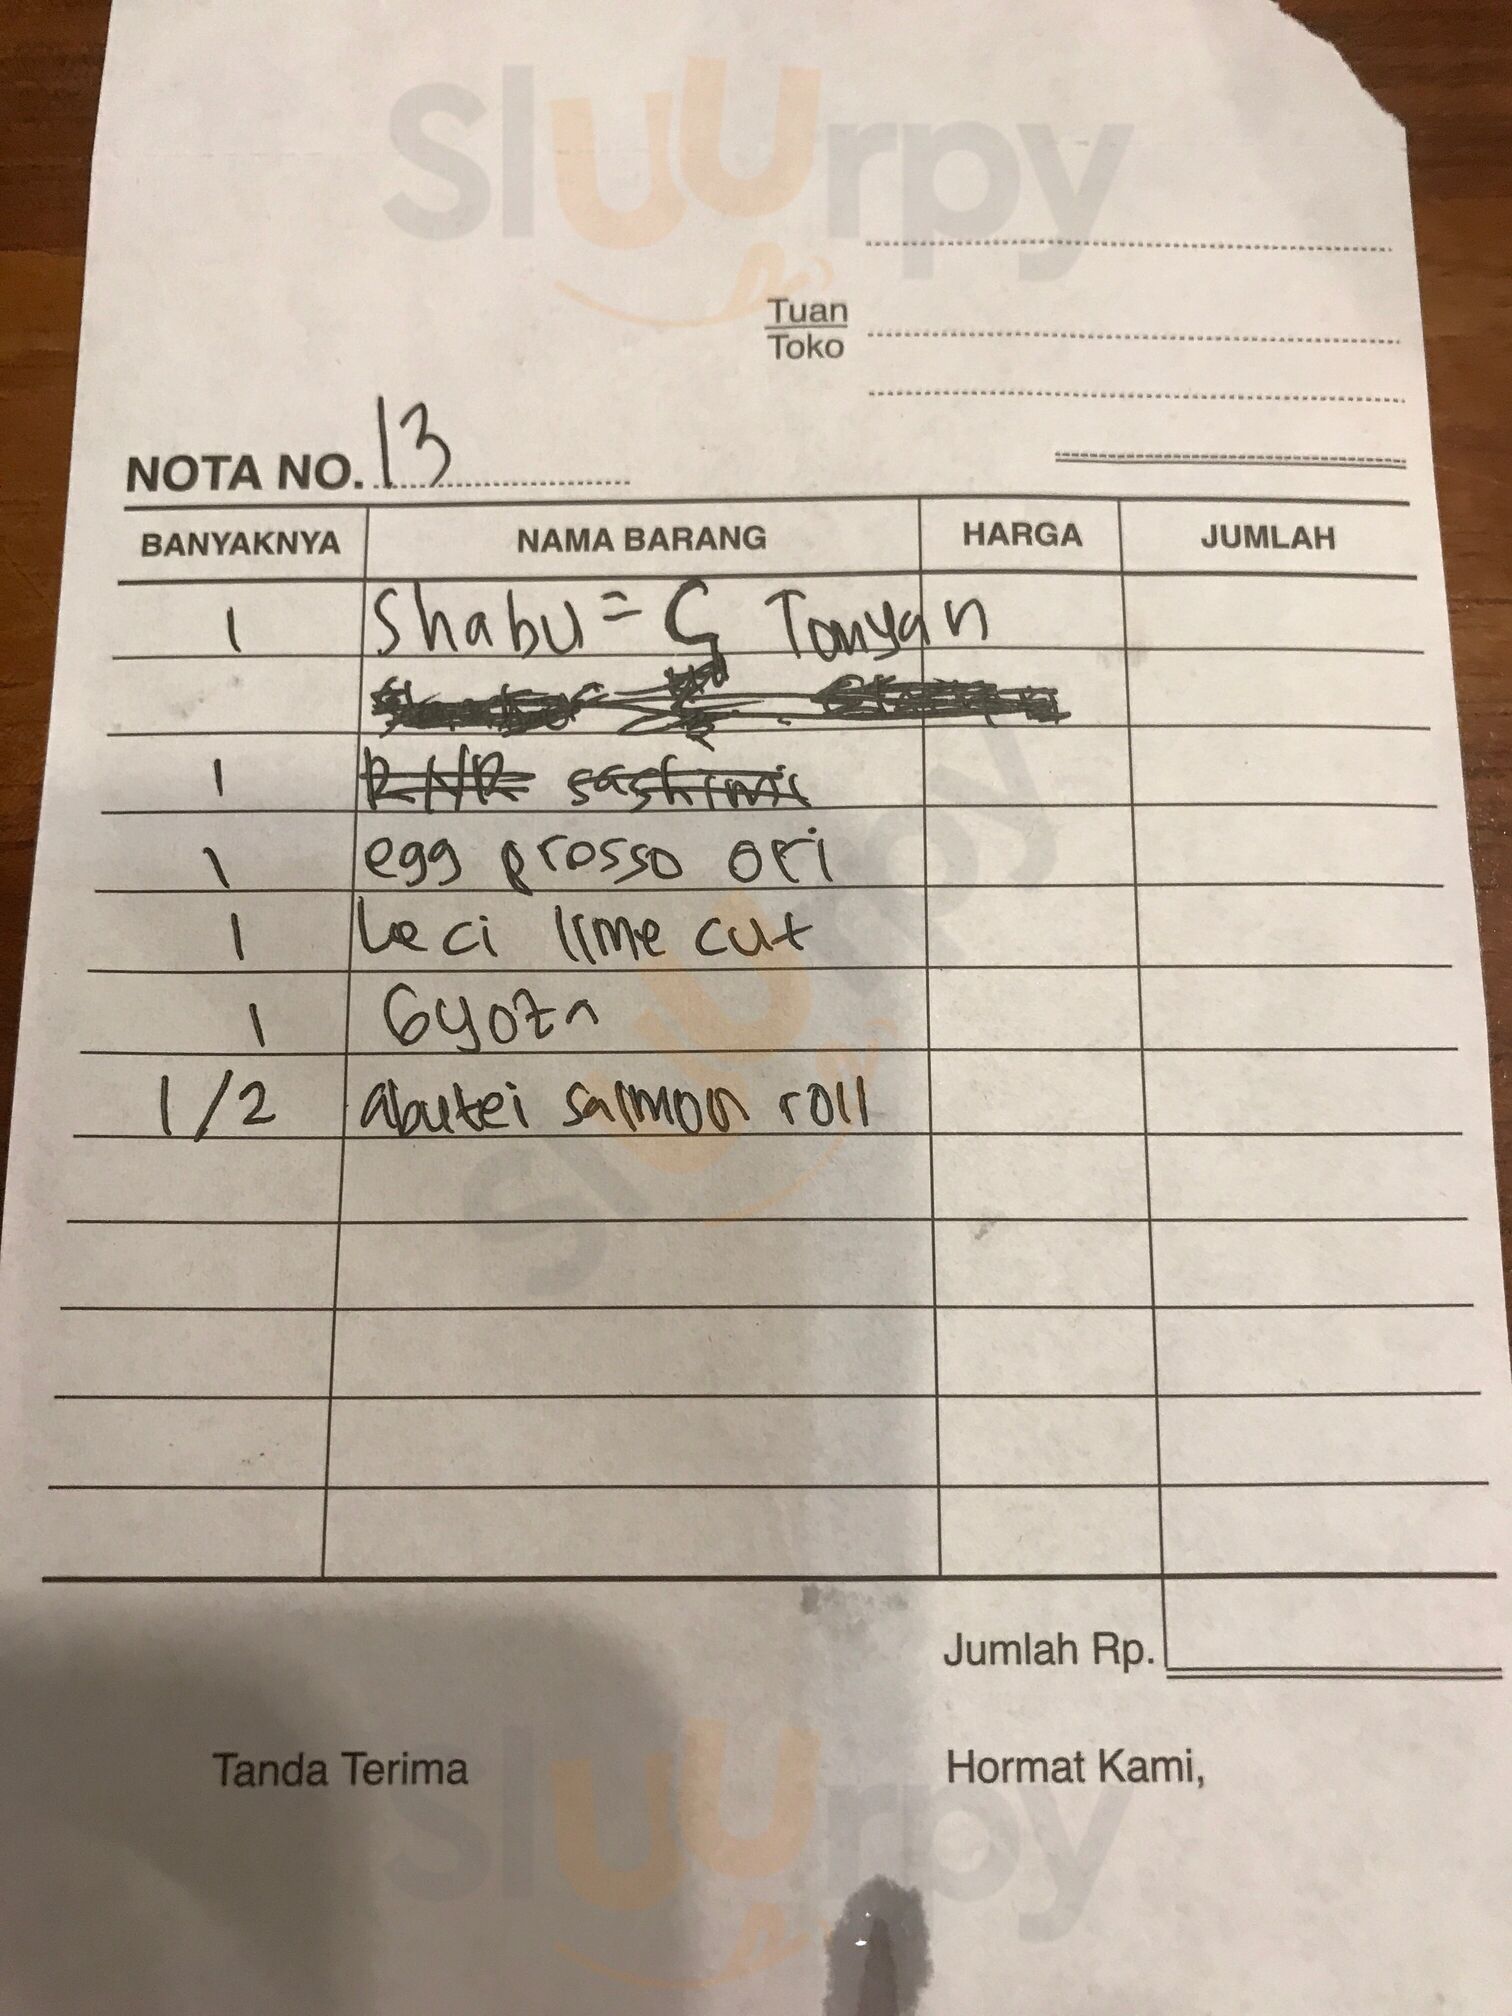 Sluurpy
Tuan
Toko
NOTA NO. 13
BANYAKNYA NAMA BARANG HARGA JUMLAH
1 Shabu = Tomyan
1 RNR sashimi
1 egg prosso ori
1 Leci lime cut
1 Gyoza
1/2 abutei salmon roll
Sluurpy
Jumlah Rp.
Tanda Terima Hormat Kami,
Sluurpy